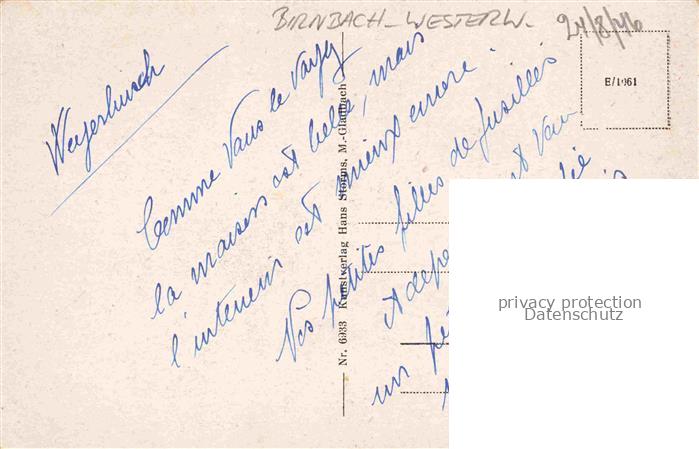 BIRNBACH - WESTERW.
24/8/46
E/1961
Weyerbusch
Comme vous le voyez
la maison est belle, mais
l'intérieur est mieux encore.
Vos petites filles de fusillés
un
Nr. 6933 Kunstverlag Hans Storms, M.-Gladbach
privacy protection
Datenschutz